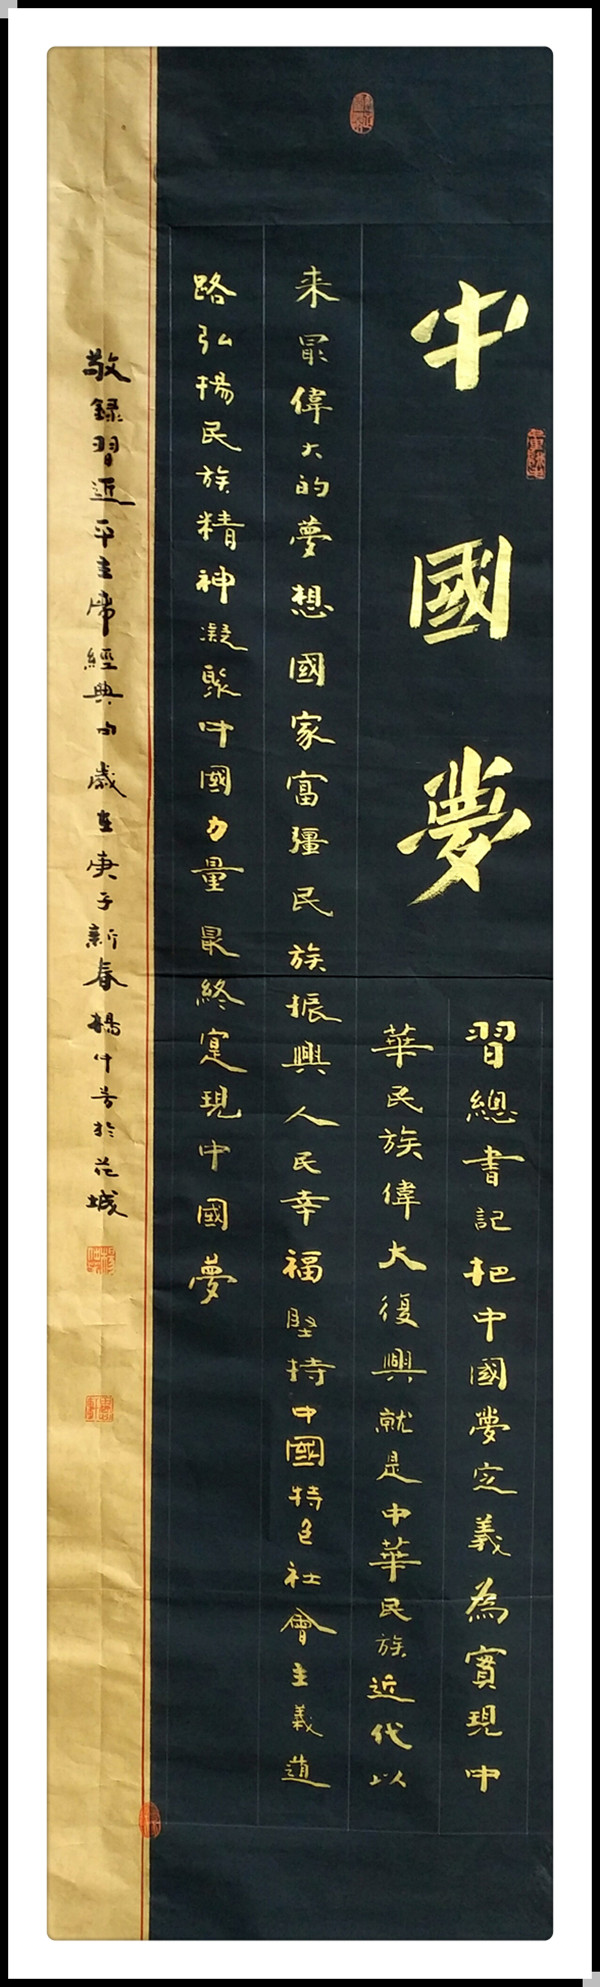 中國夢
習總書記把中國夢定義為實現中
華民族偉大復興就是中華民族近代以
来最偉大的夢想國家富彊民族振興人民幸福堅持中國特色社會主義道
路弘揚民族精神凝聚中國力量最終寔現中國夢
敬録習近平主席經典句歲在庚子新春楊仕芳於花城